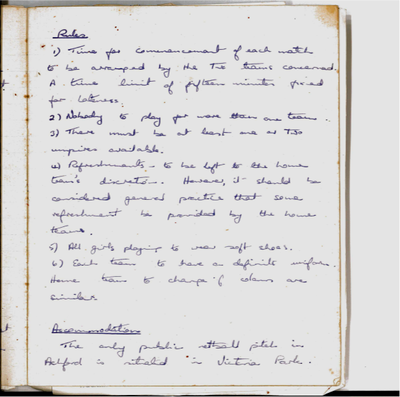 Rules
1) Time for commencement of each match
to be arranged by the two teams concerned.
A time limit of fifteen minutes fixed
for lateness.
2) Nobody to play for more than one team.
3) There must be at least one or two
umpires available.
4) Refreshments - to be left to the home
team's discretion. However, it should be
considered general practice that some
refreshment be provided by the home
team.
5) All girls playing to wear soft shoes.
6) Each team to have an definite uniform.
Home team to change if colours are
similar.
Accommodation
The only public netball pitch in
Ashford is in Victoria Park.